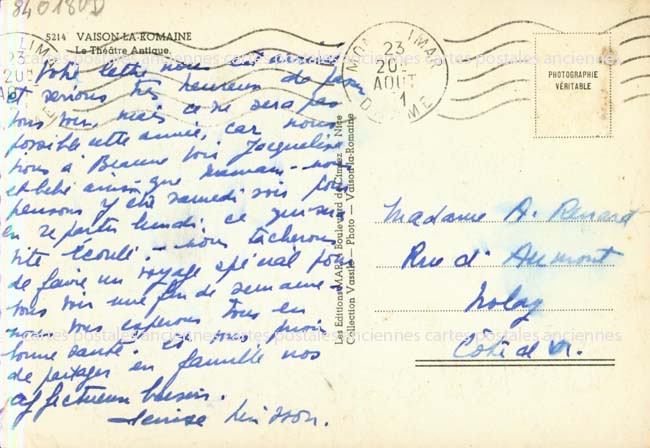 840180D
5214 VAISON-LA-ROMAINE
Le Théâtre Antique.
Votre lettre nous est arrivée
et serions très heureux de
vous voir, mais ce ne sera pas
possible cette année, car nous
à Beaune voir Jacqueline
et bébé ainsi que maman - nous
pensons y être samedi soir pour
en repartir lundi. ce qui sera
vite écoulé. - nous tâcherons
de faire un voyage spécial pour
vous voir une fin de semaine -
nous vous espérons tous en
bonne santé. Et vous prions
de partager en famille nos
affectueux baisers.
Denise
MON IMAR
23
20
AOUT
1
DROME
PHOTOGRAPHIE
VÉRITABLE
Les Editions MAR Boulevard de Cimiez Nice
Collection Vassile - Photo - Vaison-la-Romaine
Madame A. Renard
Rue d'Aumont
Nolay
Côte d'Or.
cartes postales anciennes cartes postales anciennes cartes postales anciennes
cartes postales anciennes cartes postales anciennes cartes postales anciennes